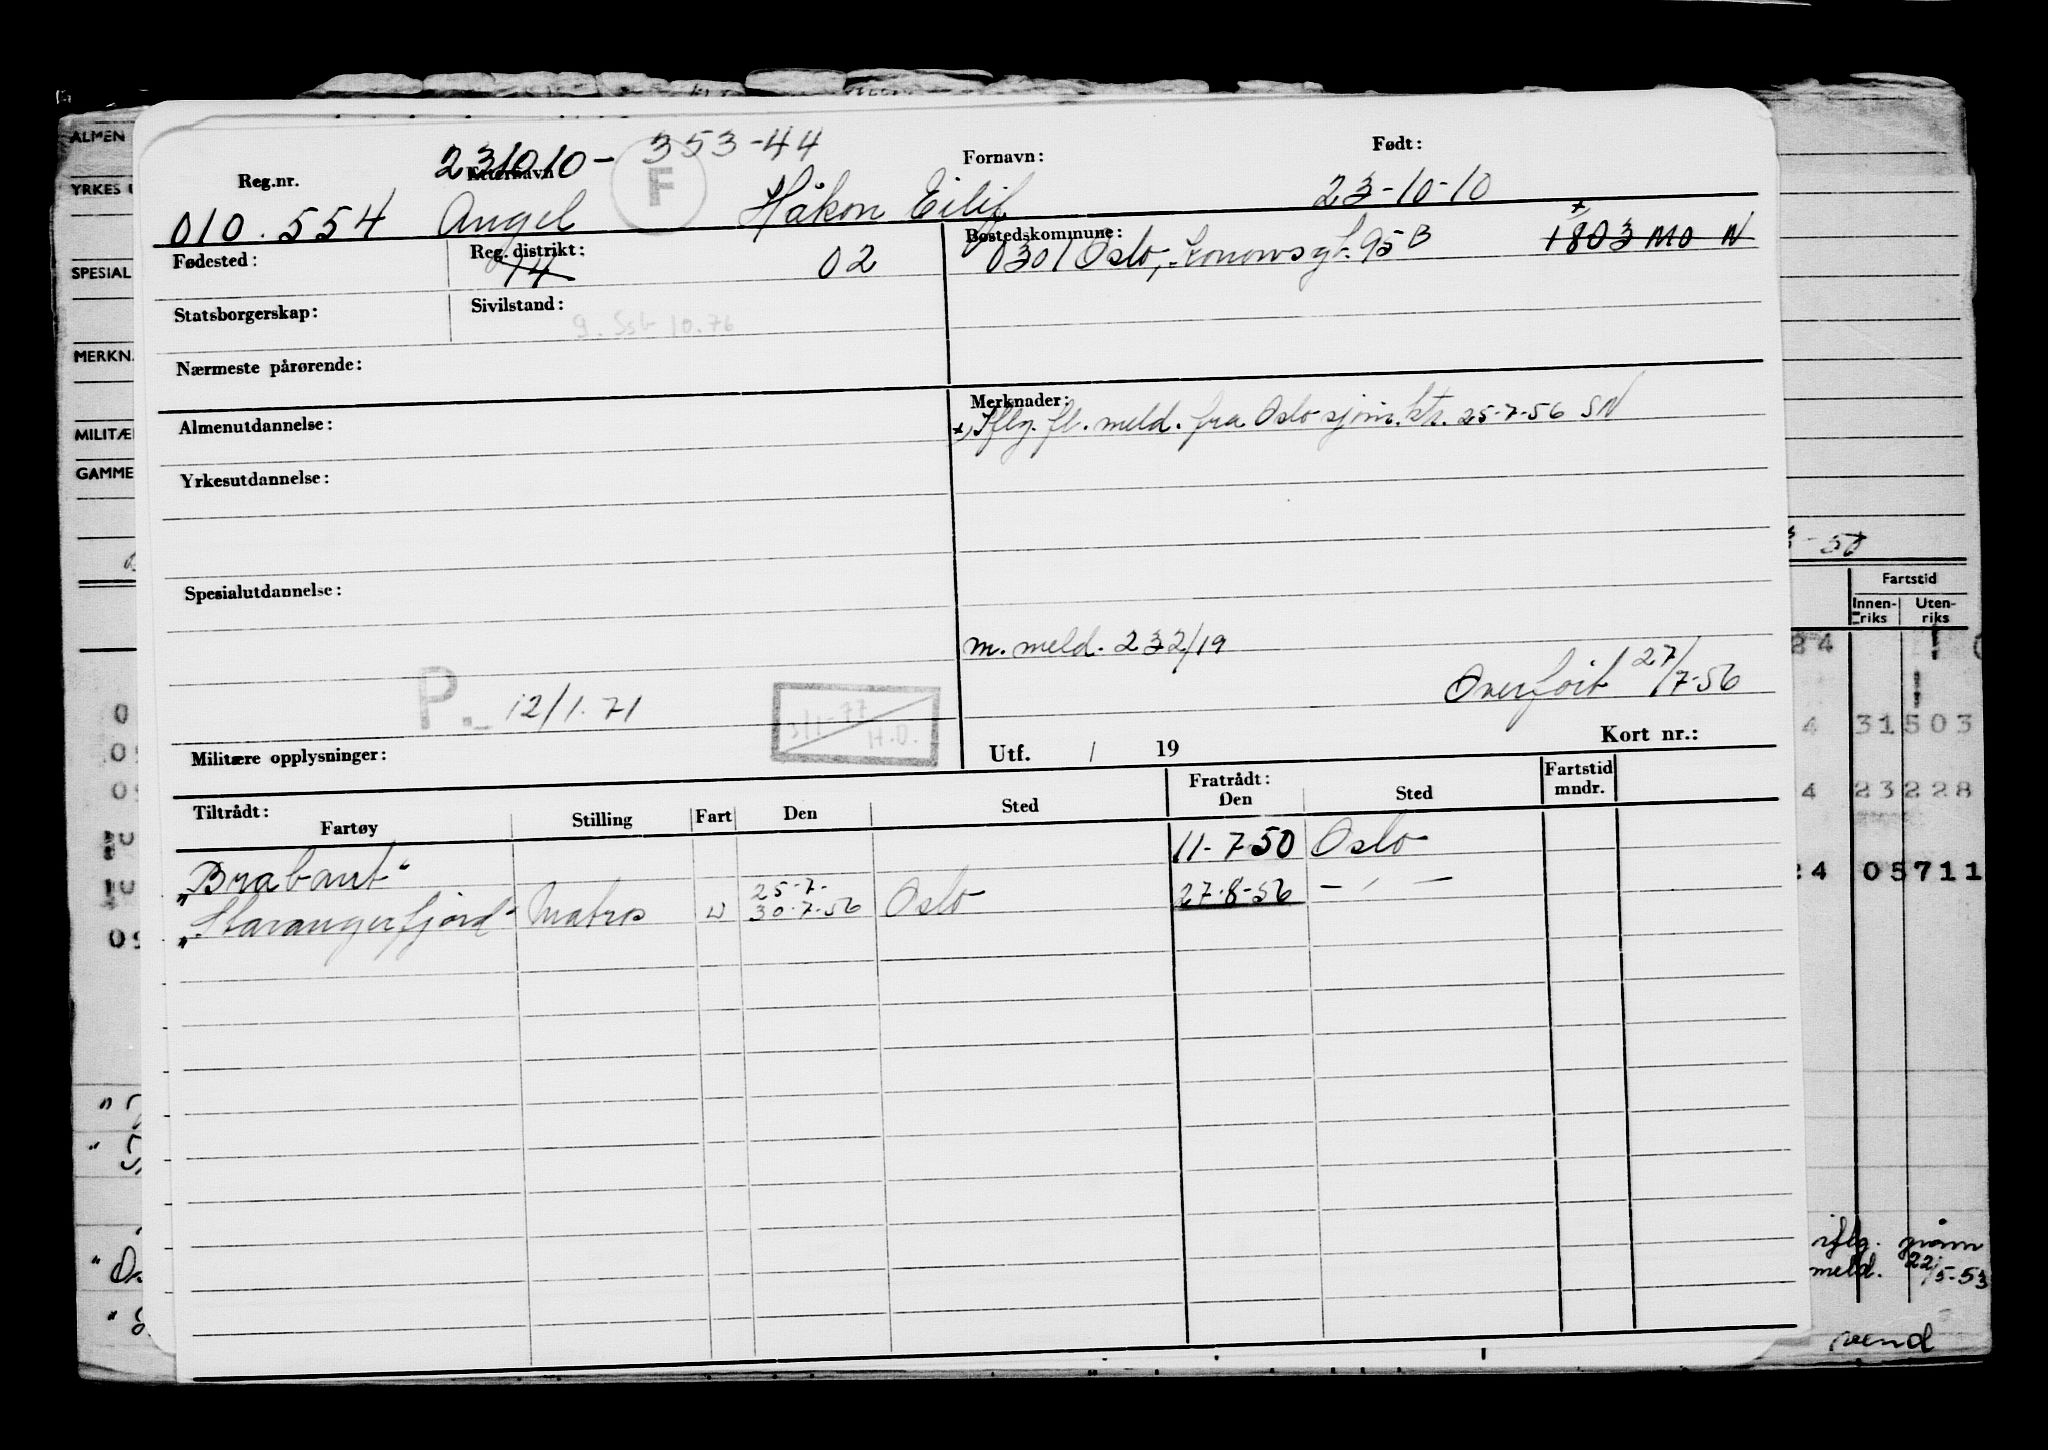 231010- 353-44
F
Reg.nr. Etternavn Fornavn: Født:
010.554 Angel Håkon Eilif 23-10-10
Fødested: Reg. distrikt: Bostedskommune:
14 02 0301 Oslo, Konowsgt. 95 B 1803 MO N
Statsborgerskap: Sivilstand:
10.76
Nærmeste pårørende:
Almenutdannelse: Merknader:
x) Iflg. fl. meld. fra Oslo sjøm.ktr. 25-7-56 SN
Yrkesutdannelse:
Spesialutdannelse:
m. meld. 232/19
P. 12/1.71 Overført 27/7-56
3/1-77 H.O.
Militære opplysninger: Utf. / 19 Kort nr.:
Tiltrådt: Fratrådt: Fartstid
Fartøy Stilling Fart Den Sted Den Sted mndr.
"Brabant" 11-7-50 Oslo
"Stavangerfjord" Matros U 25-7- 30-7-56 Oslo 27-8-56 - " -
ALMEN
YRKES
SPESIAL
MERKN.
MILITÆ
GAMME
-50
Fartstid
Innen-riks Uten-riks
24
4 31503
4 23228
24 05711
iflg. sjøm
meld. 22/5-53
vend